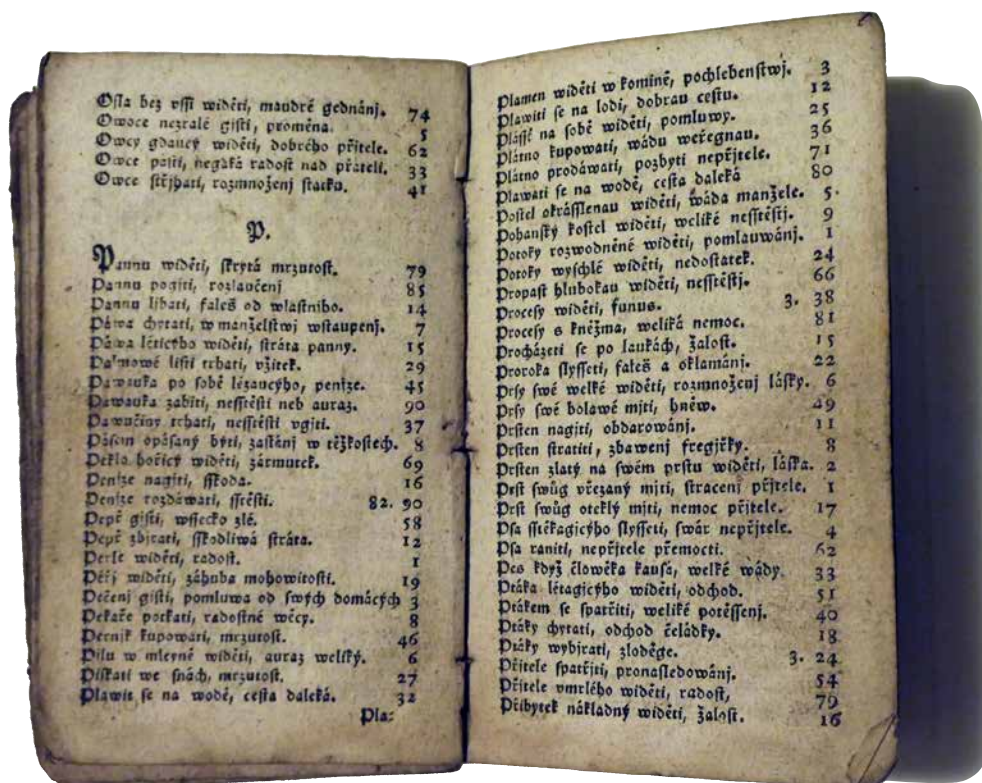 Osla bez vssí widěti, maudré gednánj. 74
Owoce nezralé gisti, proměna. 5
Owcy gdaucý widěti, dobrého přjtele. 62
Owce pásti, negaká radost nad přáteli. 33
Owce střjhati, rozmnoženj statku. 41
P.
Pannu widěti, skrytá mrzutost. 79
Pannu pogjti, rozlaučenj 85
Pannu ljbati, faleš od wlastnjho. 14
Páwa chytati, w manželstwj wstaupenj. 7
Páwa létícýho widěti, stráta panny. 15
Palmowé listí trhati, vžitek. 29
Pawauka po sobě lézaucýho, penjze. 45
Pawauka zabíti, nesstěsti neb auraz. 90
Pawučiny trhati, nesstěsti vgjti. 37
Pásem opásaný býti, zastánj w těžkostech. 8
Peklo hořícý widěti, zármutek. 69
Penjze nagjti, sskoda. 16
Penjze rozdáwati, sstěsti. 82. 90
Pepř gjsti, wssecko zlé. 58
Pepř zbjrati, sskodliwá stráta. 12
Perle widěti, radost. 1
Péřj widěti, záhuba mohowitosti. 19
Pečenj gjsti, pomluwa od swých domácých 3
Pekaře potkati, radostné wěcy. 8
Pernjk kupowati, mrzutost. 46
Pilu w mleyně widěti, auraz weliký. 6
Pískati we snách, mrzutost. 27
Plawit se na wodě, cesta daleká. 32
Pla:
Plamen widěti w komině, pochlebenstwj. 3
Plawiti se na lodi, dobrau cestu. 12
Plássť na sobě widěti, pomluwy. 25
Plátno kupowati, wádu weřegnau. 36
Plátno prodáwati, pozbyti nepřjtele. 71
Plawati se na wodě, cesta daleká 80
Postel okrásslenau widěti, wáda manžele. 5.
Pohanský kostel widěti, weliké nesstěstj. 9
Potoky rozwodněné widěti, pomlauwánj. 1
Potoky wyschlé widěti, nedostatek. 24
Propast hlubokau widěti, nesstěstj. 66
Procesy widěti, funus. 3. 38
Procesy s kněžma, weliká nemoc. 81
Procházeti se po laukách, žalost. 15
Proroka slysseti, faleš a oklamánj. 22
Prsy swé welké widěti, rozmnoženj lásky. 6
Prsy swé bolawé mjti, hněw. 49
Prsten nagjti, obdarowánj. 11
Prsten stratiti, zbawenj fregjřky. 8
Prsten zlatý na swém prstu widěti, láska. 2
Prst swůg vřezaný mjti, stracenj přjtele. 1
Prst swůg oteklý mjti, nemoc přjtele. 17
Psa sstěkagicýho slysseti, swár nepřjtele. 4
Psa raniti, nepřjtele přemocti. 62
Pes když člowěka kausá, welké wády. 33
Ptáka létagicýho widěti, odchod. 51
Ptákem se spatřiti, weliké potěssenj. 40
Ptáky chytati, odchod čeládky. 18
Ptáky wybjrati, zloděge. 3. 24
Přítele spatřjti, pronásledowánj. 54
Přítele vmrlého widěti, radost, 79
Přibytek nákladný widěti, žalost. 16